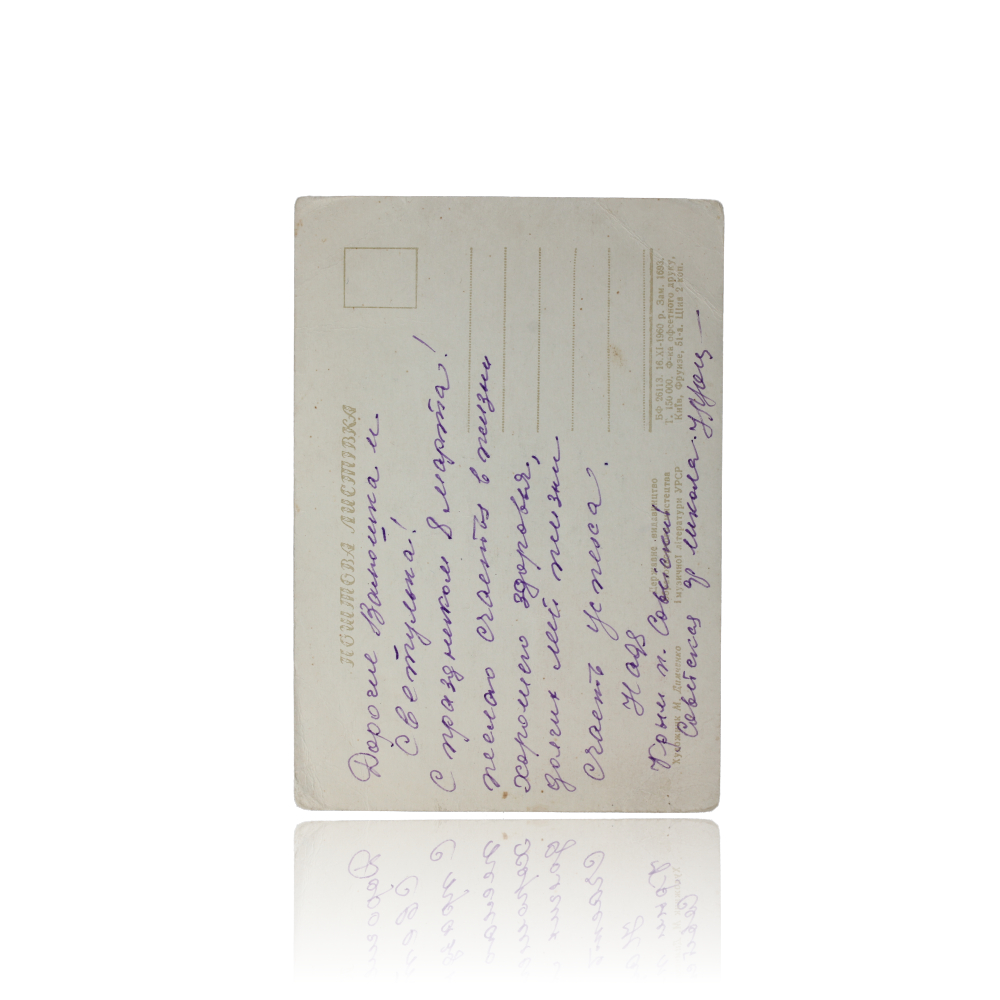 ПОШТОВА ЛИСТІВКА
Дорогие Ванюшка и
Светулька!
С праздником 8 марта!
желаю счастья в жизни
хорошего здоровья,
долгих лет жизни
счасть успеха.
Надя
Крым п. Советский
Советская
школа
Державне видавництво
мистецтва
і музичної літератури УРСР
Художник М. Димченко
БФ 26113. 16.XI-1960 р. Зам. 1693.
Т. 150 000. Ф-ка офсетного друку,
Київ, Фрунзе, 51-а. Ціна 2 коп.